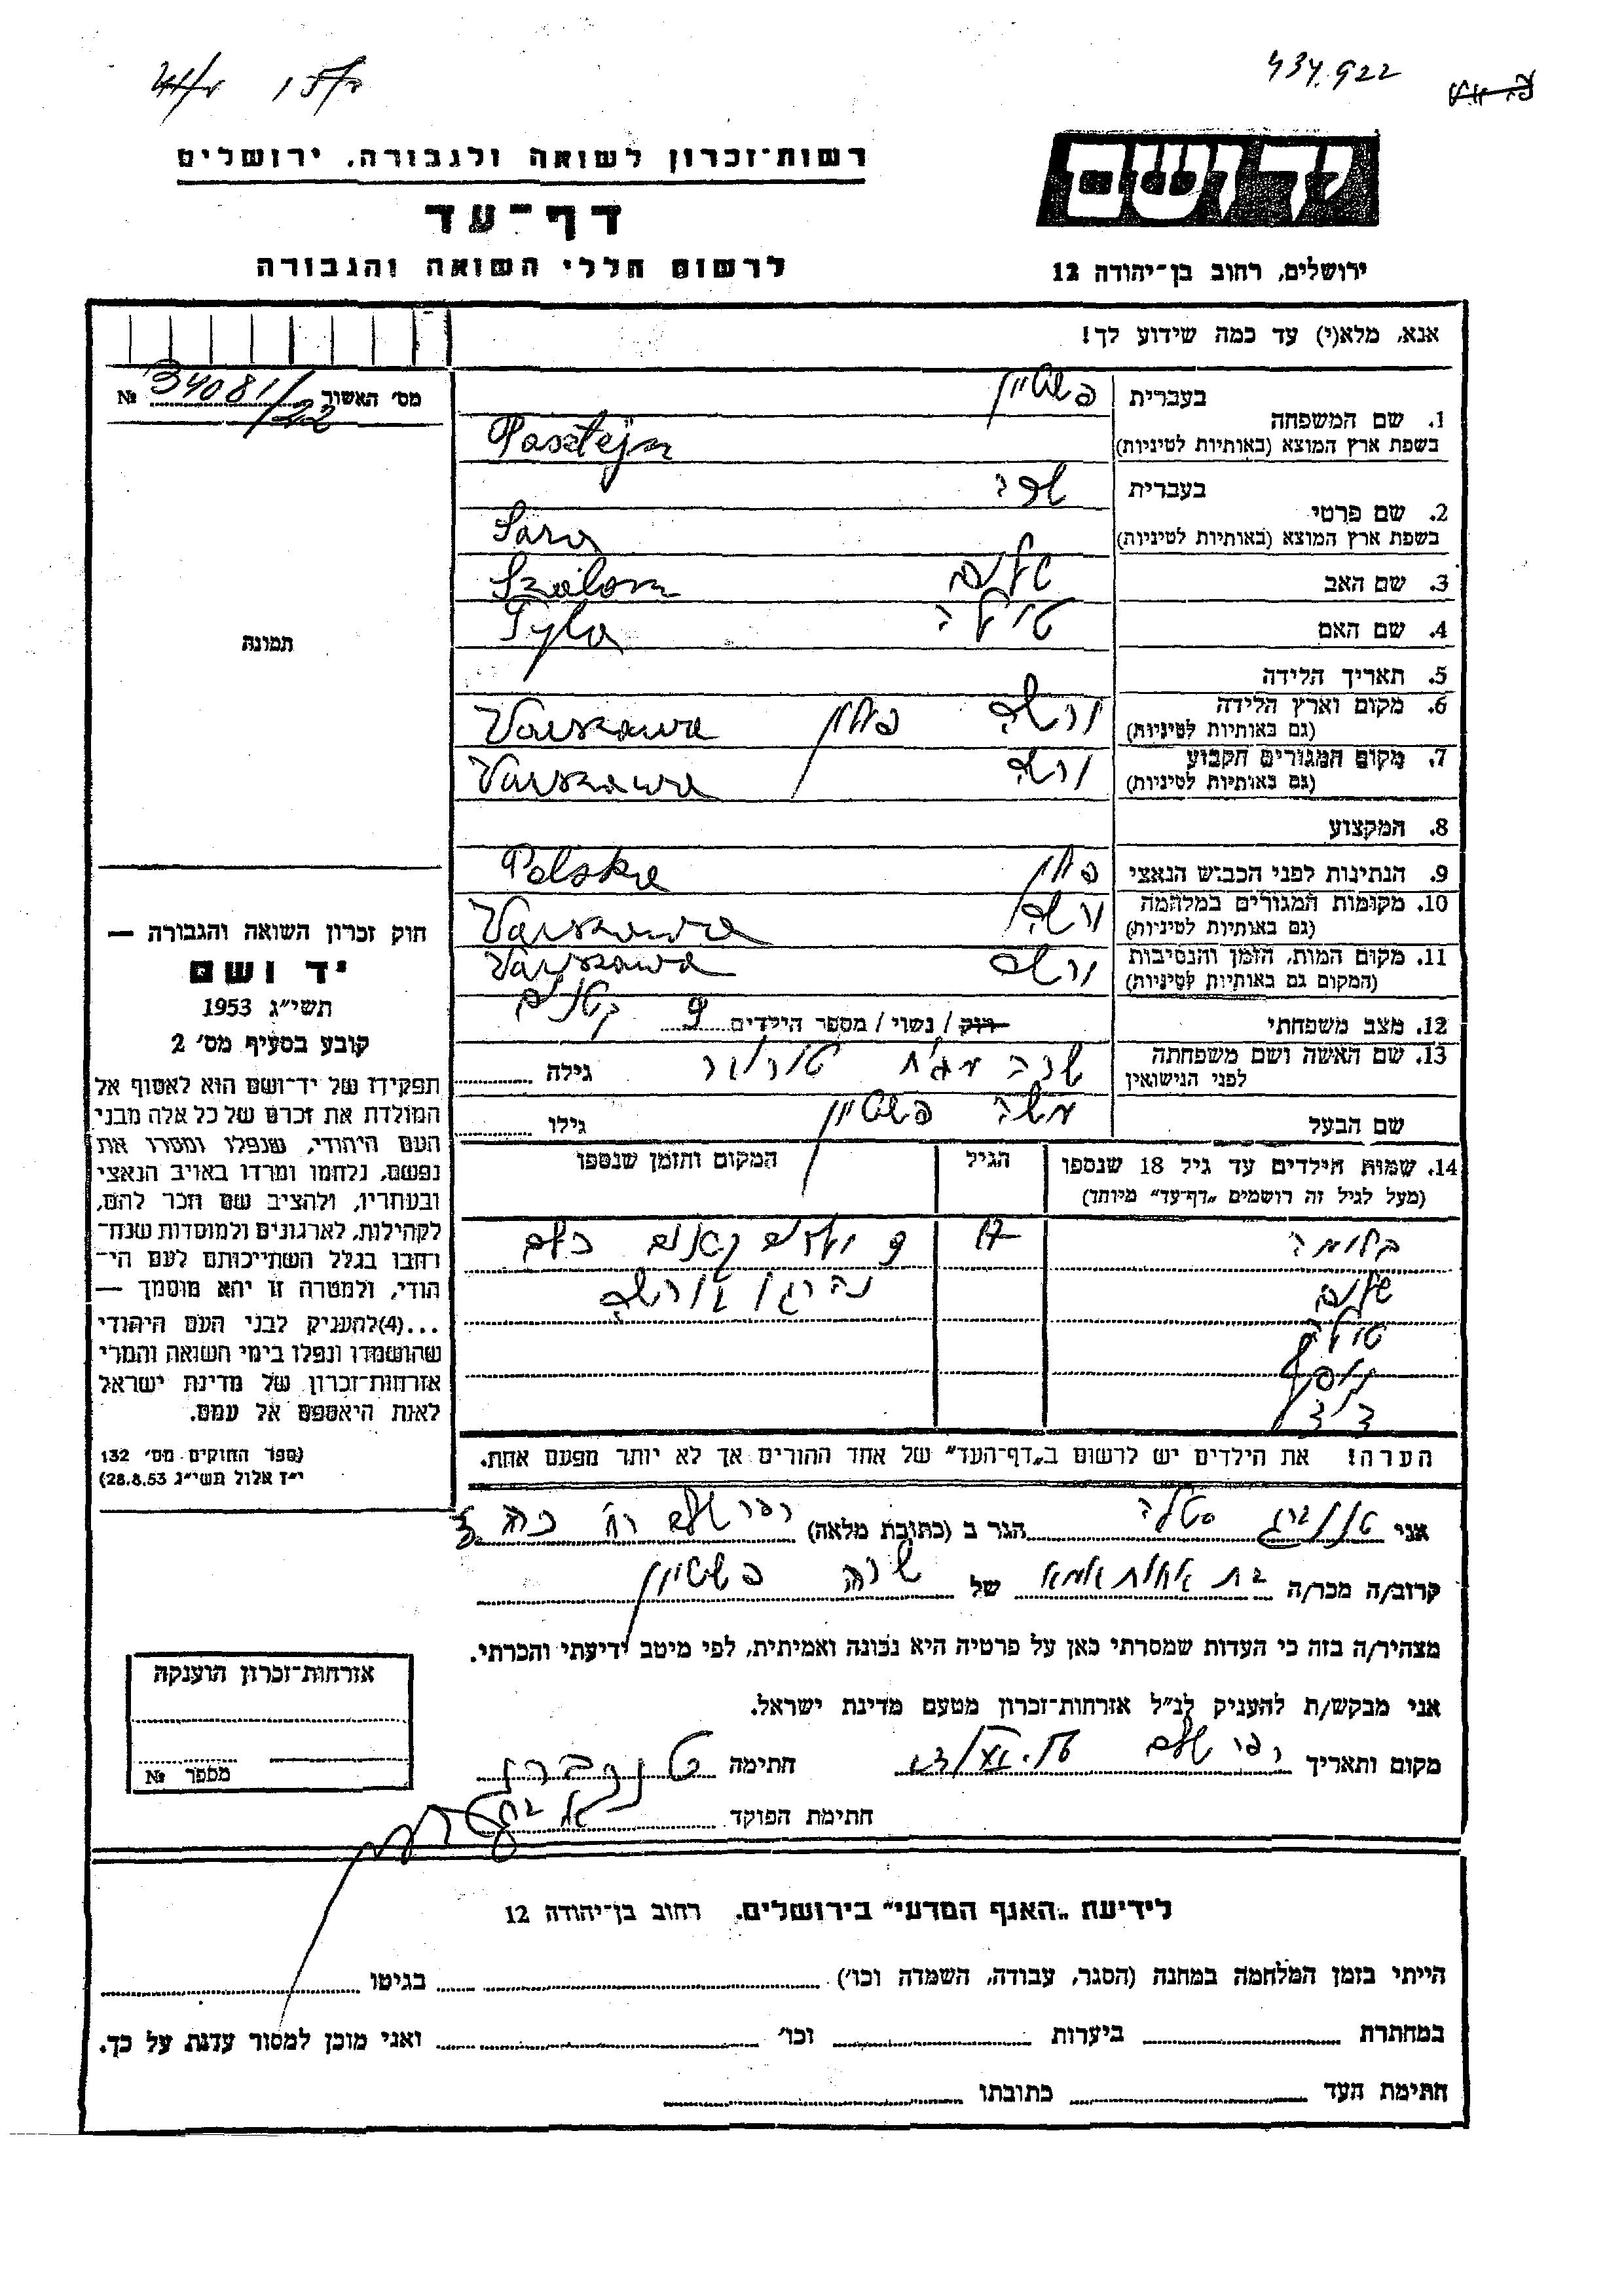 434.922
רשות־זכרון לשואה ולגבורה. ירושלים
יד ושם
דף־עד
לרשום חללי השואה והגבורה
ירושלים, רחוב בן־יהודה 12
אנא, מלא(י) עד כמה שידוע לך!
מס׳ האשור № 34081/22
1. שם המשפחה בעברית פשטיין
בשפת ארץ המוצא (באותיות לטיניות) Pasztejn
2. שם פרטי בעברית שרה
בשפת ארץ המוצא (באותיות לטיניות) Sara
3. שם האב שלום Szalom
4. שם האם טילה Tyla
5. תאריך הלידה
6. מקום וארץ הלידה (גם באותיות לטיניות) ורשה פולין Varszawa
7. מקום המגורים הקבוע (גם באותיות לטיניות) ורשה Varszawa
8. המקצוע
9. הנתינות לפני הכבוש הנאצי פולין Polska
10. מקומות המגורים במלחמה (גם באותיות לטיניות) ורשה Varszawa
11. מקום המות, הזמן והנסיבות (המקום גם באותיות לטיניות) ורשה Varszawa
12. מצב משפחתי רווק / נשוי / מספר הילדים 9 קטנים
13. שם האשה ושם משפחתה לפני הנישואין שרה גילה
שם הבעל משה פשטיין גילו
14. שמות הילדים עד גיל 18 שנספו
(מעל לגיל זה רושמים „דף־עד״ מיוחד)
הגיל
המקום והזמן שנספו
בלומה 17 9 ילדים קטנים כולם
שלום נהרגו בורשה
טילה
יוסף
הערה! את הילדים יש לרשום ב„דף־העד״ של אחד ההורים אך לא יותר מפעם אחת.
תמונה
חוק זכרון השואה והגבורה —
יד ושם
תשי״ג 1953
קובע בסעיף מס׳ 2
תפקידו של יד־ושם הוא לאסוף אל
המולדת את זכרם של כל אלה מבני
העם היהודי, שנפלו ומסרו את
נפשם, נלחמו ומרדו באויב הנאצי
ובעוזריו, ולהציב שם וזכר להם,
לקהילות, לארגונים ולמוסדות שנח־
רבו בגלל השתייכותם לעם הי־
הודי, ולמטרה זו יהא מוסמך —
...(4)להעניק לבני העם היהודי
שהושמדו ונפלו בימי השואה והמרי
אזרחות־זכרון של מדינת ישראל
לאות היאספם אל עמם.
(ספר החוקים מס׳ 132
י״ז אלול תשי״ג 28.8.53)
אני סטלה הגר ב (כתובת מלאה)
קרוב/ה מכר/ה בת אחות אמא של שרה פשטיין
מצהיר/ה בזה כי העדות שמסרתי כאן על פרטיה היא נכונה ואמיתית, לפי מיטב ידיעתי והכרתי.
אני מבקש/ת להעניק לנ״ל אזרחות־זכרון מטעם מדינת ישראל.
מקום ותאריך חתימה
חתימת הפוקד
אזרחות־זכרון הוענקה
מספר №
לידיעת „האגף המדעי״ בירושלים. רחוב בן־יהודה 12
הייתי בזמן המלחמה במחנה (הסגר, עבודה, השמדה וכו׳) בגיטו
במחתרת ביערות וכו׳ ואני מוכן למסור עדות על כך.
חתימת העד כתובתו